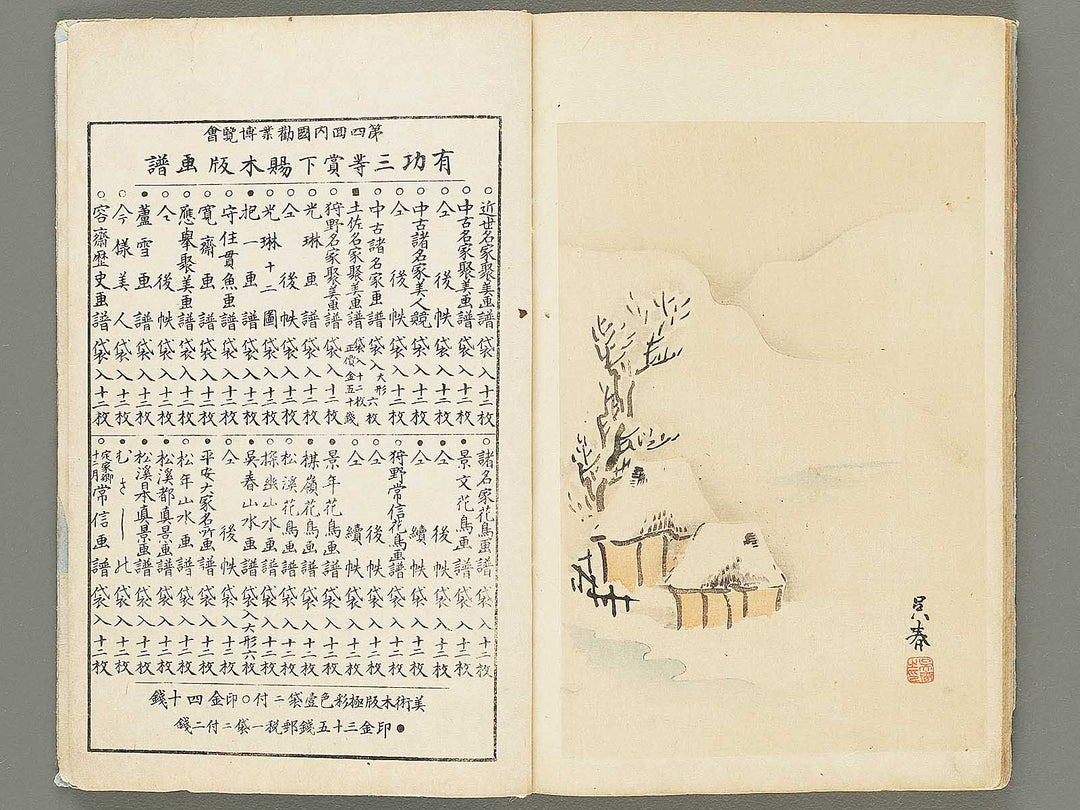 呉春
第四回内國勸業博覽會
有功三等賞下賜木版画譜
○近世名家聚美画譜袋入十二枚
○中古名家聚美画譜袋入十二枚
○仝後帙袋入十二枚
○中古諸名家美人競袋入十二枚
○仝後帙袋入十二枚
○中古諸名家画譜袋入大形六枚
■土佐名家聚美画譜袋入十二枚正價金五十錢
○狩野名家聚美画譜袋入十二枚
○光琳画譜袋入十二枚
○仝後帙袋入十二枚
○光琳十二圖袋入十二枚
●抱一画譜袋入十二枚
○守住貫魚画譜袋入十二枚
○寛齋画譜袋入十二枚
○應舉聚美画譜袋入十二枚
○仝後帙袋入十二枚
●蘆雪画譜袋入十二枚
○今様美人譜袋入十二枚
○容齋歴史画譜袋入十二枚
○諸名家花鳥画譜袋入十二枚
●景文花鳥画譜袋入十二枚
●仝後帙袋入十二枚
●仝續帙袋入十二枚
○狩野常信花鳥画譜袋入十二枚
●仝後帙袋入十二枚
●仝續帙袋入十二枚
●景年花鳥画譜袋入十二枚
●楳嶺花鳥画譜袋入十二枚
○松溪花鳥画譜袋入十二枚
○探幽山水画譜袋入十二枚
●呉春山水画譜袋入大形六枚
○仝後帙袋入十二枚
●平安大家名所画譜袋入十二枚
●松年山水画譜袋入十二枚
●松溪都真景画譜袋入十二枚
●松溪日本真景画譜袋入十二枚
●むさし 袋入十二枚
○定家卿十二月常信画譜袋入十二枚
美術木版極彩色壹袋ニ付○印金四十錢
●印金三十五錢郵税一袋ニ付二錢